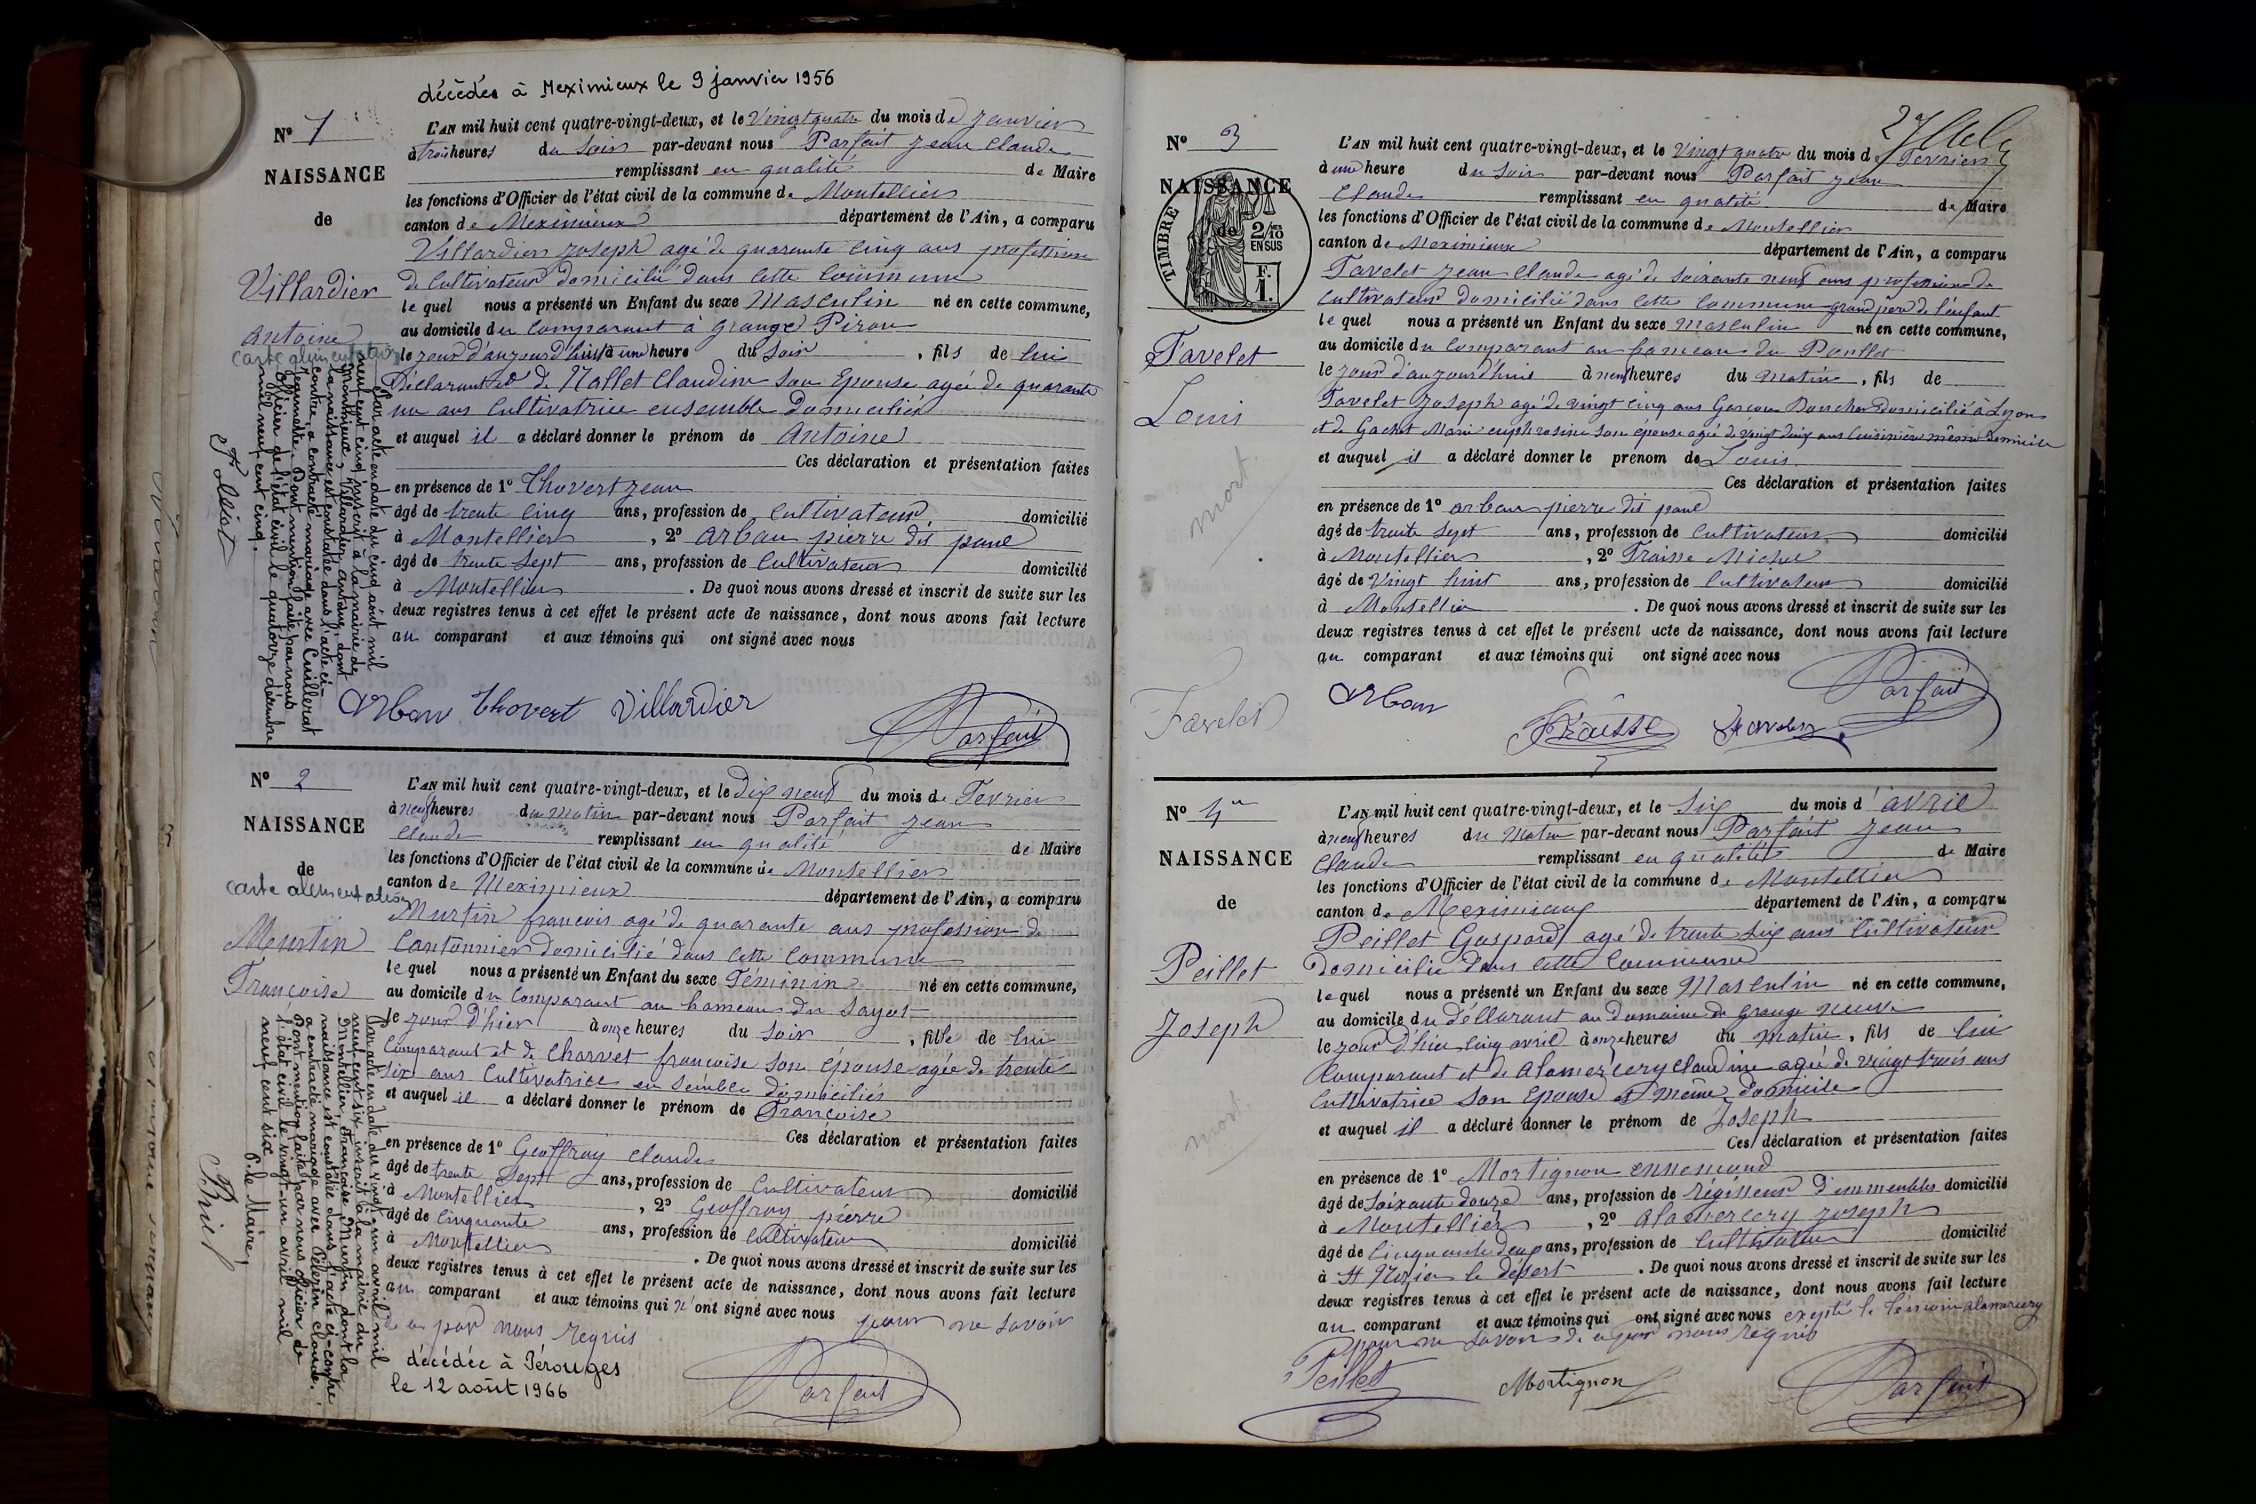 décédé à Meximieux le 9 janvier 1956
N° 1
NAISSANCE
de
Villardier
Antoine
carte alimentation
L'AN mil huit cent quatre-vingt-deux, et le Vingt quatre du mois de Janvier
à trois heures du Soir par-devant nous Parfait Jean Claude
remplissant en qualité de Maire
les fonctions d'Officier de l'état civil de la commune de Montellier
canton de Meximieux département de l'Ain, a comparu
Villardier Joseph agé de quarante cinq ans profession
de Cultivateur domicilié dans cette commune
lequel nous a présenté un Enfant du sexe Masculin né en cette commune,
au domicile du Comparant à Grange Piron
le jour d'aujourd'hui à une heure du Soir, fils de lui
Déclarant et de Mallet Claudine son Epouse agée de quarante
un ans Cultivatrice ensemble Domiciliés
et auquel il a déclaré donner le prénom de Antoine
Ces déclaration et présentation faites
en présence de 1° Thovert Jean
âgé de trente cinq ans, profession de Cultivateur domicilié
à Montellier, 2° Arban pierre dit paul
âgé de trente sept ans, profession de Cultivateur domicilié
à Montellier. De quoi nous avons dressé et inscrit de suite sur les
deux registres tenus à cet effet le présent acte de naissance, dont nous avons fait lecture
au comparant et aux témoins qui ont signé avec nous
Arban Thovert Villardier
Parfait
Par acte en date du cinq août mil
neuf cent cinq, inscrit à la mairie de
Montluel, Villardier, Antoine, dont
la naissance est constatée dans l'acte ci-
contre, a contracté mariage avec Cuillerat
Jeannette. Dont mention faite par nous
officier de l'état civil le quatorze décembre
mil neuf cent cinq.
N° 2
NAISSANCE
de
carte alimentation
Murtin
Françoise
L'AN mil huit cent quatre-vingt-deux, et le Dix neuf du mois de Fevrier
à neuf heures du Matin par-devant nous Parfait Jean
Claude remplissant en qualité de Maire
les fonctions d'Officier de l'état civil de la commune de Montellier
canton de Meximieux département de l'Ain, a comparu
Murtin françois agé de quarante ans profession de
Cantonnier domicilié dans cette Commune
lequel nous a présenté un Enfant du sexe Féminin né en cette commune,
au domicile du Comparant au hameau du Sayet
le jour d'hier à onze heures du Soir, fille de lui
Comparant et de Charvet françoise son épouse agée de trente
six ans Cultivatrice ensemble domiciliés
et auquel il a déclaré donner le prénom de Françoise
Ces déclaration et présentation faites
en présence de 1° Geoffray Claude
âgé de trente Sept ans, profession de Cultivateur domicilié
à Montellier, 2° Geoffray pierre
âgé de Cinquante ans, profession de Cultivateur domicilié
à Montellier. De quoi nous avons dressé et inscrit de suite sur les
deux registres tenus à cet effet le présent acte de naissance, dont nous avons fait lecture
au comparant et aux témoins qui n'ont signé avec nous pour ne savoir
de ce par nous requis
décédée à Pérouges
le 12 août 1966
Parfait
Par acte en date du vingt-un avril mil
neuf cent six, inscrit à la mairie du
Montellier, Françoise Murtin dont la
naissance est constatée dans l'acte ci-contre
a contracté mariage avec Pélerin Claude.
Dont mention faite par nous officier de
l'état civil le vingt-un avril mil
neuf cent six
P. le Maire,
N° 3
NAISSANCE
de
TIMBRE
2/10 EN SUS
F. 1.
Favelet
Louis
mort
Favelet
L'AN mil huit cent quatre-vingt-deux, et le Vingt quatre du mois de Fevrier
à une heure du Soir par-devant nous Parfait Jean
Claude remplissant en qualité de Maire
les fonctions d'Officier de l'état civil de la commune de Montellier
canton de Meximieux département de l'Ain, a comparu
Favelet Jean Claude agé de Soixante neuf ans profession de
Cultivateur domicilié dans cette Commune grand père de l'enfant
lequel nous a présenté un Enfant du sexe Masculin né en cette commune,
au domicile du Comparant au hameau du
le jour d'aujourd'hui à neuf heures du matin, fils de
Favelet Joseph agé de vingt cinq ans Garçon Boucher Domicilié à Lyon
et de Gachet Marie euphrosine son épouse agée de vingt cinq ans Cuisinière même domicile
et auquel il a déclaré donner le prénom de Louis
Ces déclaration et présentation faites
en présence de 1° Arban pierre dit paul
âgé de trente Sept ans, profession de Cultivateur domicilié
à Montellier, 2° Fraisse Michel
âgé de Vingt huit ans, profession de Cultivateur domicilié
à Montellier. De quoi nous avons dressé et inscrit de suite sur les
deux registres tenus à cet effet le présent acte de naissance, dont nous avons fait lecture
au comparant et aux témoins qui ont signé avec nous
Arban Fraisse Favelet Parfait
N° 4
NAISSANCE
de
Peillet
Joseph
mort
L'AN mil huit cent quatre-vingt-deux, et le Six du mois d'avril
à neuf heures du Matin par-devant nous Parfait Jean
Claude remplissant en qualité de Maire
les fonctions d'Officier de l'état civil de la commune de Montellier
canton de Meximieux département de l'Ain, a comparu
Peillet Gaspard agé de trente six ans Cultivateur
Domicilié dans cette Commune
lequel nous a présenté un Enfant du sexe Masculin né en cette commune,
au domicile du déclarant au Domaine de Grange neuve
le jour d'hier cinq avril à onze heures du Matin, fils de lui
Comparant et de Alamercery Claudine agée de vingt trois ans
Cultivatrice son Epouse et même domicile
et auquel il a déclaré donner le prénom de Joseph
Ces déclaration et présentation faites
en présence de 1° Mortignon ennemond
âgé de Soixante douze ans, profession de régisseur d'immeubles domicilié
à Montellier, 2° Alamercery Joseph
âgé de Cinquante deux ans, profession de Cultivateur domicilié
à St Nizier le désert. De quoi nous avons dressé et inscrit de suite sur les
deux registres tenus à cet effet le présent acte de naissance, dont nous avons fait lecture
au comparant et aux témoins qui ont signé avec nous excepté le témoin alamercery
pour ne savoir de ce par nous requis
Peillet Mortignon Parfait